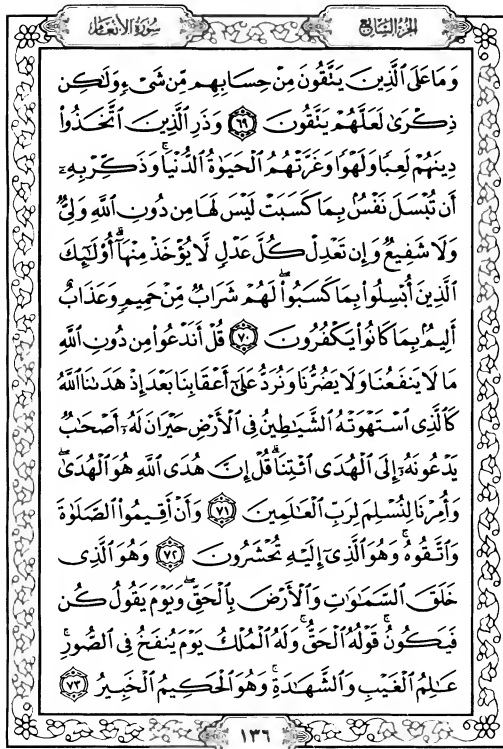 سُورَةُ الأَنْعَامِ
الجُزْءُ السَّابِعُ
وَمَا عَلَى ٱلَّذِينَ يَتَّقُونَ مِنْ حِسَابِهِم مِّن شَىْءٍ وَلَٰكِن
ذِكْرَىٰ لَعَلَّهُمْ يَتَّقُونَ ٦٩ وَذَرِ ٱلَّذِينَ ٱتَّخَذُوا۟
دِينَهُمْ لَعِبًا وَلَهْوًا وَغَرَّتْهُمُ ٱلْحَيَوٰةُ ٱلدُّنْيَا ۚ وَذَكِّرْ بِهِۦٓ
أَن تُبْسَلَ نَفْسٌۢ بِمَا كَسَبَتْ لَيْسَ لَهَا مِن دُونِ ٱللَّهِ وَلِىٌّ
وَلَا شَفِيعٌ وَإِن تَعْدِلْ كُلَّ عَدْلٍ لَّا يُؤْخَذْ مِنْهَآ ۗ أُو۟لَٰٓئِكَ
ٱلَّذِينَ أُبْسِلُوا۟ بِمَا كَسَبُوا۟ ۖ لَهُمْ شَرَابٌ مِّنْ حَمِيمٍ وَعَذَابٌ
أَلِيمٌۢ بِمَا كَانُوا۟ يَكْفُرُونَ ٧٠ قُلْ أَنَدْعُوا۟ مِن دُونِ ٱللَّهِ
مَا لَا يَنفَعُنَا وَلَا يَضُرُّنَا وَنُرَدُّ عَلَىٰٓ أَعْقَابِنَا بَعْدَ إِذْ هَدَىٰنَا ٱللَّهُ
كَٱلَّذِى ٱسْتَهْوَتْهُ ٱلشَّيَٰطِينُ فِى ٱلْأَرْضِ حَيْرَانَ لَهُۥٓ أَصْحَٰبٌ
يَدْعُونَهُۥٓ إِلَى ٱلْهُدَى ٱئْتِنَا ۗ قُلْ إِنَّ هُدَى ٱللَّهِ هُوَ ٱلْهُدَىٰ ۖ
وَأُمِرْنَا لِنُسْلِمَ لِرَبِّ ٱلْعَٰلَمِينَ ٧١ وَأَنْ أَقِيمُوا۟ ٱلصَّلَوٰةَ
وَٱتَّقُوهُ ۚ وَهُوَ ٱلَّذِىٓ إِلَيْهِ تُحْشَرُونَ ٧٢ وَهُوَ ٱلَّذِى
خَلَقَ ٱلسَّمَٰوَٰتِ وَٱلْأَرْضَ بِٱلْحَقِّ ۖ وَيَوْمَ يَقُولُ كُن
فَيَكُونُ ۚ قَوْلُهُ ٱلْحَقُّ ۚ وَلَهُ ٱلْمُلْكُ يَوْمَ يُنفَخُ فِى ٱلصُّورِ ۚ
عَٰلِمُ ٱلْغَيْبِ وَٱلشَّهَٰدَةِ ۚ وَهُوَ ٱلْحَكِيمُ ٱلْخَبِيرُ ٧٣
١٣٦